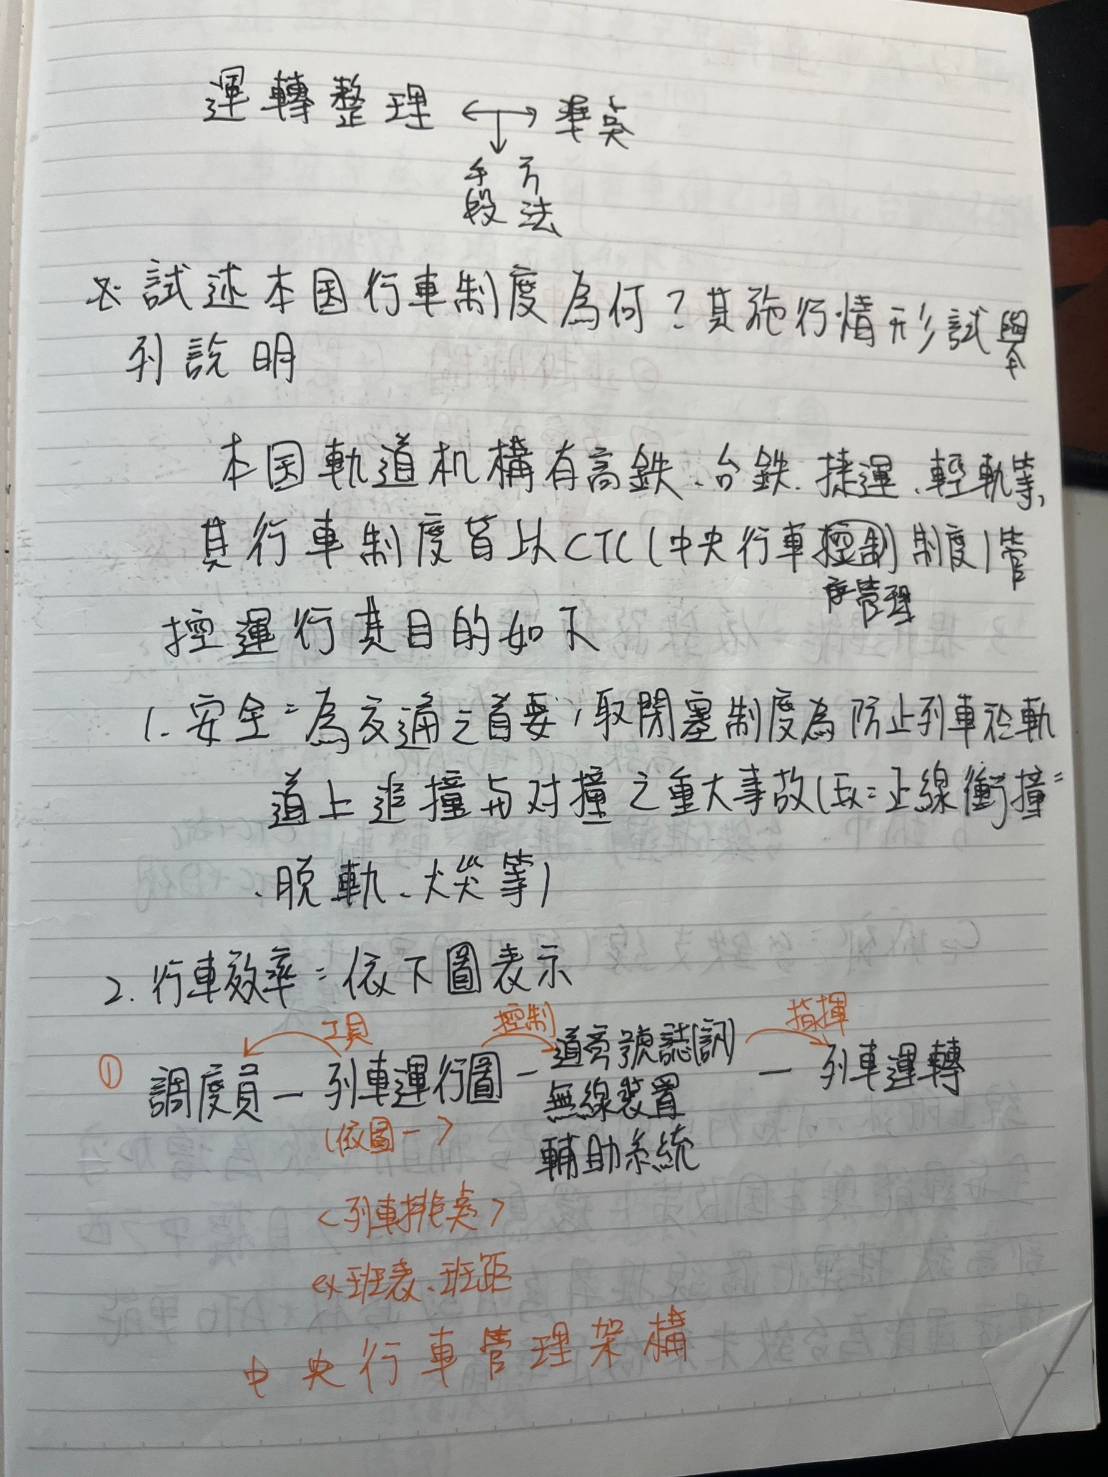 運轉整理 ←→ 準矣
↓
手段 方法
※ 試述本国行車制度為何?其施行情形試舉
列說明
本国軌道机構有高鉄、台鉄、捷運、輕軌等,
其行車制度皆以CTC(中央行車控制制度)管
管理
控運行其目的如下
1. 安全=為交通之首要,取閉塞制度為防止列車於軌
道上追撞与对撞之重大事故(ex=正線衝撞
、脫軌、火災等)
2. 行車效率=依下圖表示
工具 控制 指揮
① 調度員 — 列車運行圖 — 道旁號誌(訊) — 列車運轉
無線裝置
(依圖一) 輔助系統
<列車排點>
ex班表、班距
中央行車管理架構